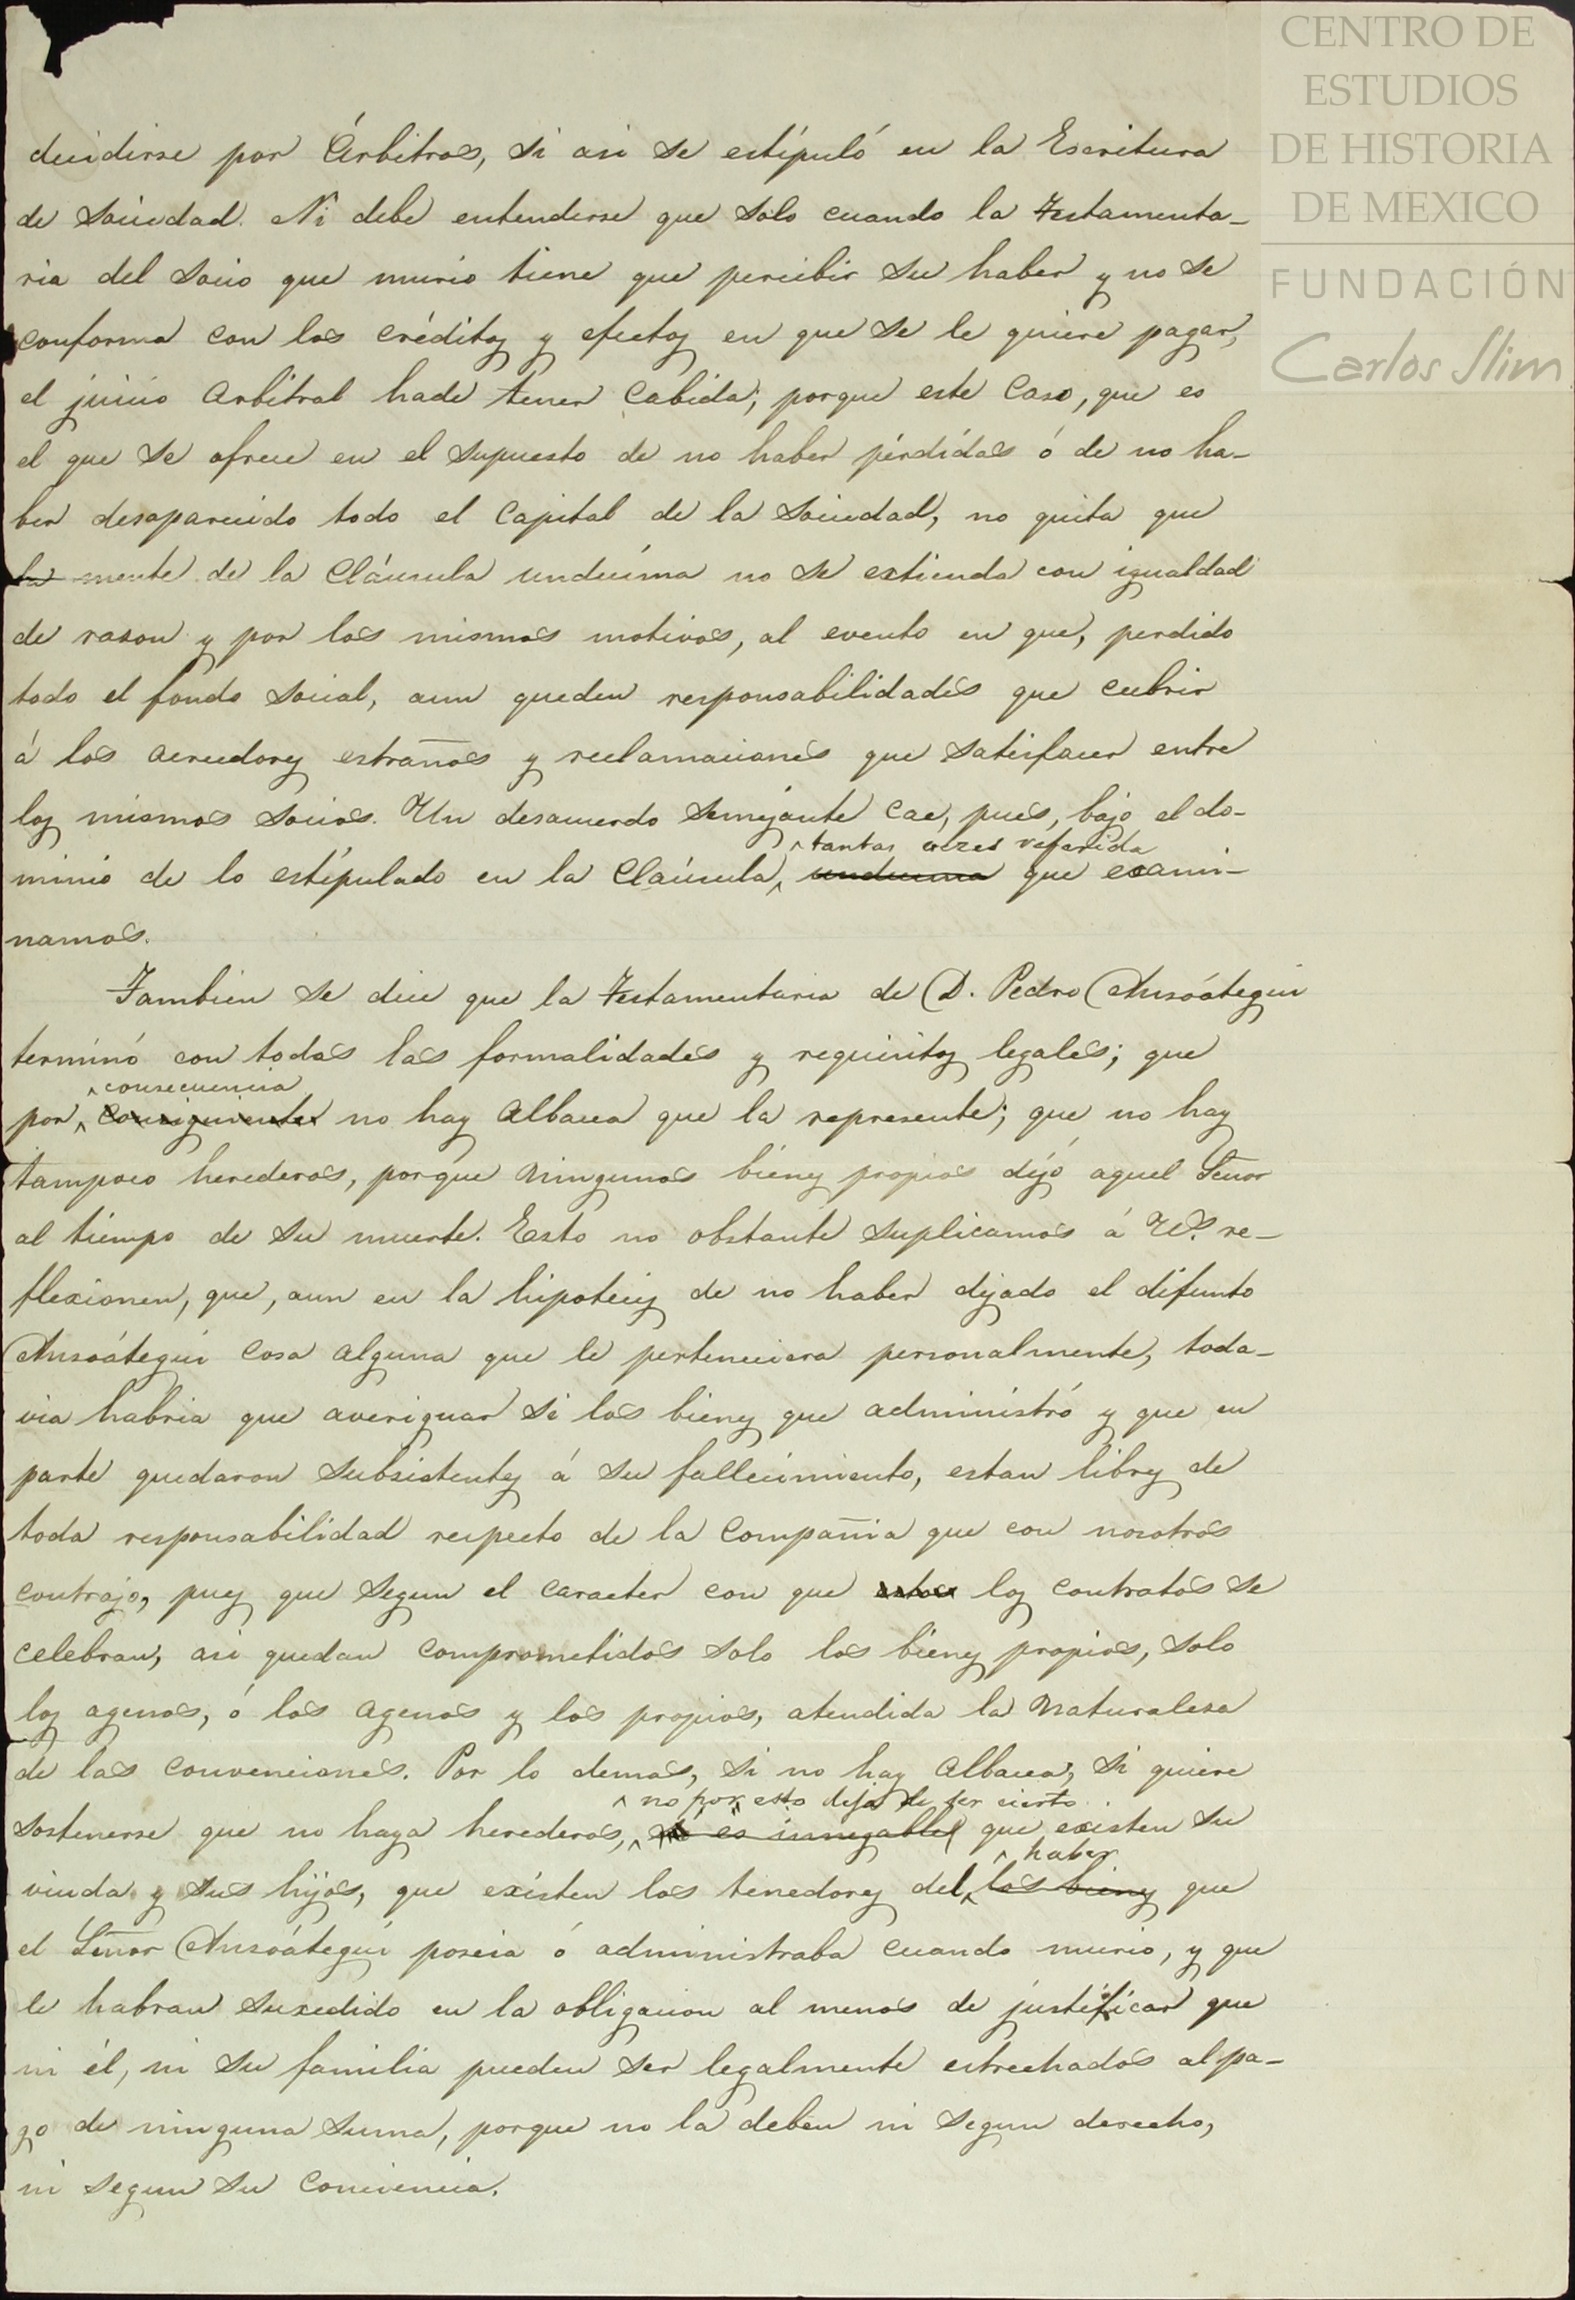 CENTRO DE
ESTUDIOS
DE HISTORIA
DE MEXICO
FUNDACIÓN
Carlos Slim
decidirse por Árbitros, si asi se estipuló en la Escritura
de Sociedad. Ni debe entenderse que solo cuando la Testamenta-
ria del Socio que murio tiene que percibir su haber y no se
conforma con los créditos y efectos en que se le quiere pagar,
el juicio arbitral hade tener cabida; porque este caso, que es
el que se ofrece en el supuesto de no haber pérdidas ó de no ha-
ber desaparecido todo el capital de la Sociedad, no quita que
la mente de la Cláusula undécima no se extienda con igualdad
de rason y por los mismos motivos, al evento en que, perdido
todo el fondo Social, aun queden responsabilidades que cubrir
á los acreedores estraños y reclamaciones que satisfacer entre
los mismos Socios. Un desacuerdo semejante cae, pues, bajo el do-
tantas vezes referida
minio de lo estipulado en la Claúsula, undecima que exami-
namos.
Tambien se dice que la Testamentaria de D. Pedro Ansoátegui
terminó con todas las formalidades y requisitos legales; que
consecuencia
por consiguiente no hay Albacea que la represente; que no hay
tampoco herederos, porque ningunos bienes propios dejó aquel Señor
al tiempo de su muerte. Esto no obstante suplicamos á UU. re-
flexionen, que, aun en la hipotesis de no haber dejado el difunto
Ansoátegui cosa alguna que le perteneciera personalmente, toda-
via habria que averiguar si los bienes que administró y que en
parte quedaron subsistentes á su fallecimiento, estan libres de
toda responsabilidad respecto de la Compañia que con nosotros
contrajo, pues que segun el caracter con que estos los contratos se
celebran, asi quedan comprometidos solo los bienes propios, solo
los agenos, ó los agenos y los propios, atendida la naturalesa
de las convenciones. Por lo demas, si no hay Albacea, si quiere
no por esto deja de ser cierto
sostenerse que no haya herederos, es innegable que existen su
haber
viuda y sus hijos, que existen los tenedores del los bienes que
el Señor Ansoátegui poseia ó administraba cuando murio, y que
le habran sucedido en la obligacion al menos de justificar que
ni él, ni su familia pueden ser legalmente estrechados al pa-
go de ninguna suma, porque no la deben ni segun derecho,
ni segun su conciencia.